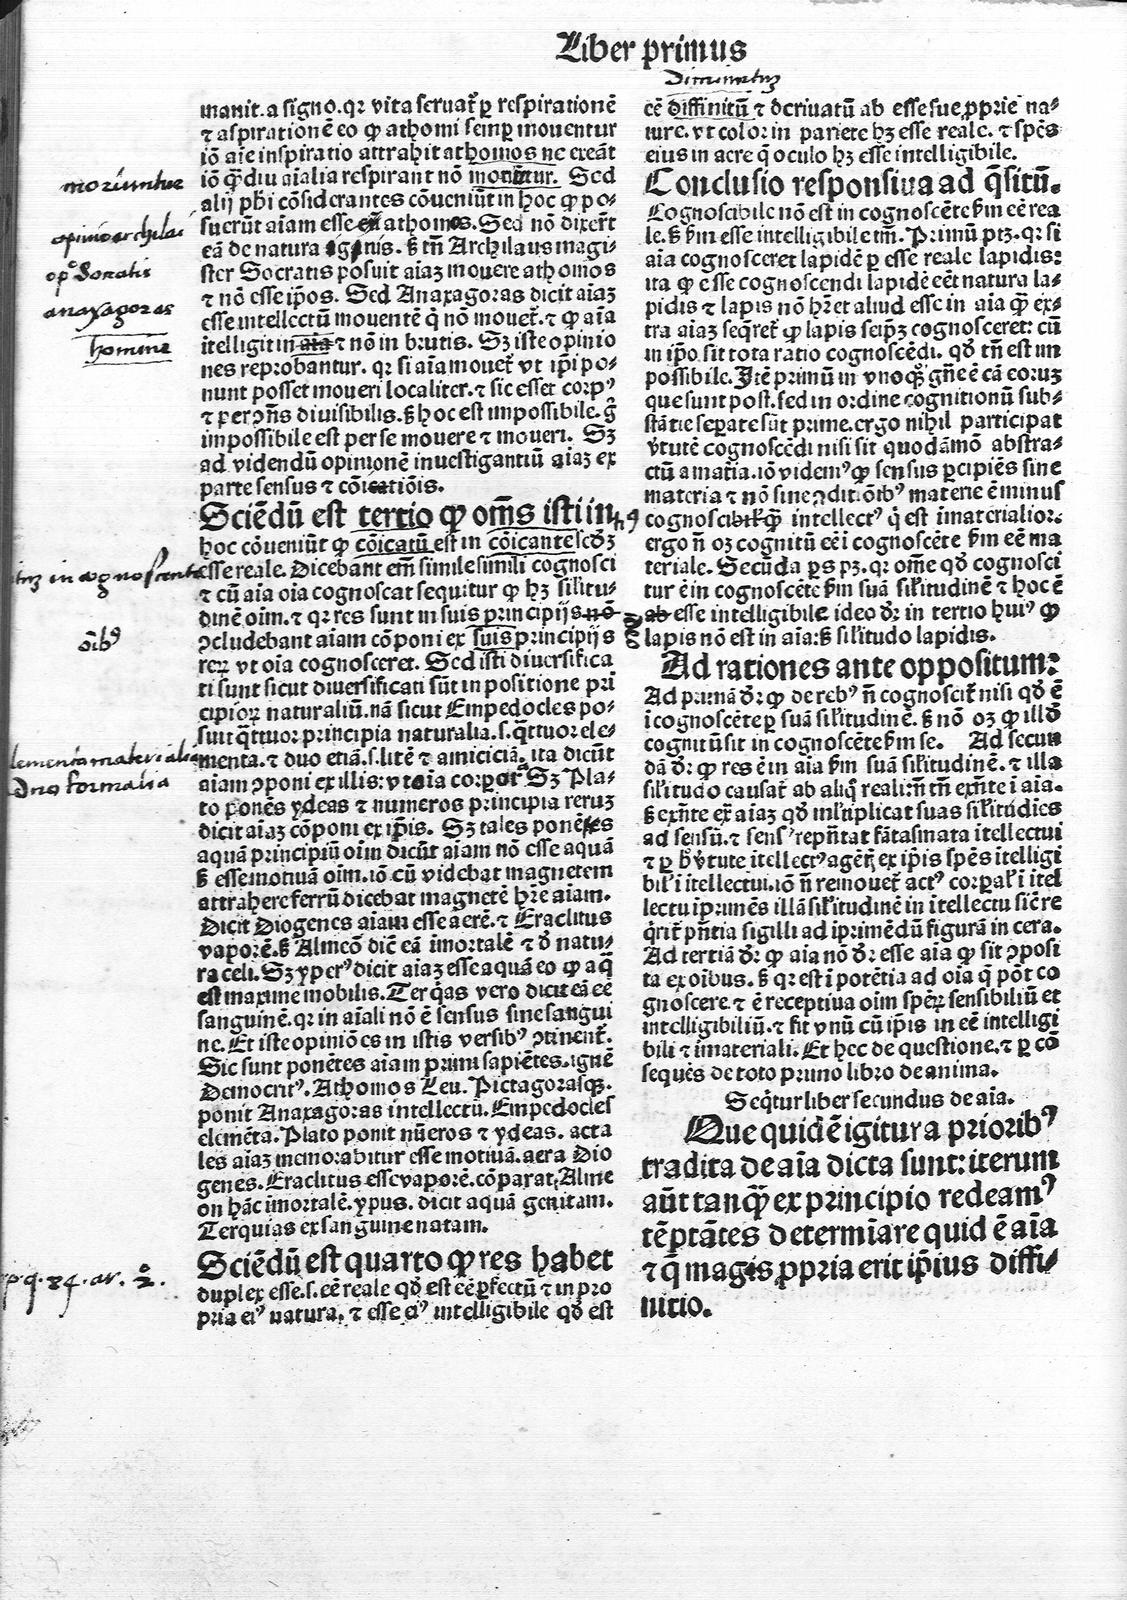 Liber primus
Diminutū
manit. a signo. qꝛ vita seruat̃ ꝑ respirationē
⁊ aspirationē eo ꝙ athomi semꝑ mouentur
iō aīe inspiratio attrahit athomos ne exeāt
iō ꝙ̃diu aīalia respirant nō moriūtur. Sed
moriuntur
alij phī cōsiderantes cōueniūt in hoc ꝙ po⸗
suerūt aīam esse athomos. Sed nō dixerūt
opinio archilai
eā de natura ignis. ꝭ tm̄ Archilaus magi
ster Socratis posuit aīaꝫ mouere athomos
opᵒ Socratis
⁊ nō esse ip̄os. Sed Anaxagoras dicit aīaꝫ
anaxagoras
esse intellectū mouentē q̇ nō mouet̃. ⁊ ꝙ aīa
itelligit in aīa ⁊ nō in brutis. Sꝫ iste opinio
homine
nes reprobantur. qꝛ si aīa mouet̃ vt ip̄i po⸗
nunt posset moueri localiter. ⁊ sic esset corpꝰ
⁊ per ꝯñs diuisibilis. ꝭ hoc est impossibile. g̊
impossibile est per se mouere ⁊ moueri. Sꝫ
ad videndū opinionē inuestigantiū aīaꝫ ex
parte sensus ⁊ cōicatiōis.
Sciēdū est tertio ꝙ om̄s isti in
hoc cōueniūt ꝙ cōicatū est in cōicante scd̄ꝫ
esse reale. Dicebant em̄ simile simili cognosci
in cognoscente
⁊ cū aīa oīa cognoscat sequitur ꝙ hꝫ silitu⸗
dinē oīm. ⁊ qꝛ res sunt in suis principijs nō
ꝯcludebant aīam cōponi ex suis principijs
oībꝰ
reꝝ vt oīa cognosceret. Sed isti diuersifica
ti sunt sicut diuersificati sūt in positione pri
cipioꝝ naturaliū. nā sicut Empedocles po⸗
suit q̄ttuor principia naturalia. s. q̄ttuor ele⸗
menta. ⁊ duo etiā. s. litē ⁊ amiciciā. ita dicūt
elementa materialia
aīam ꝯponi ex illis: vt oīa corpora. Sꝫ Pla⸗
Duo formalia
to ponēs ydeas ⁊ numeros principia reruꝫ
dicit aīaꝫ cōponi ex ip̄is. Sꝫ tales ponētes
aquā principiū oīm dicūt aīam nō esse aquā
ꝭ esse motiuā oīm. iō cū videbat magnetem
attrahere ferrū dicebat magnetē hr̄e aīam.
Dicit Diogenes aīam esse aerē. ⁊ Eraclitus
vaporē. ꝭ Almeō dic̄ eā īmortalē ⁊ ð natu⸗
ra celi. Sꝫ yperꝰ dicit aīaꝫ esse aquā eo ꝙ aq̄
est maxime mobilis. Terq̄as vero dicit eā eē
sanguinē. qꝛ in aīali nō ē sensus sine sangui
ne. Et iste opiniōes in istis versibꝰ ꝯtinent̃.
Sic sunt ponētes aīam primi sapiētes. ignē
Democritꝰ. Athomos Leu. Pictagorasꝙ.
ponit Anaxagoras intellectū. Empedocles
elemēta. Plato ponit nūeros ⁊ ydeas. acta
les aīaꝫ memorabitur esse motiuā. aera Dio
genes. Eraclitus esse vaporē. cōparat, Alme
on hāc īmortalē. ypus. dicit aquā genitam.
Terquias ex sanguine natam.
Sciēdū est quarto ꝙ res habet
p. q. 84. ar. 2.
duplex esse. s. eē reale qd̄ est eē ꝑfectū ⁊ in pro
pria eiꝰ natura. ⁊ esse eiꝰ intelligibile qd̄ est
eē diffinitū ⁊ deriuatū ab esse sue ꝓprie na⸗
ture. vt color in pariete hꝫ esse reale. ⁊ spēs
eius in aere q̄ oculo hꝫ esse intelligibile.
Conclusio responsiua ad q̄sitū.
Cognoscibile nō est in cognoscēte ẜm eē rea
le. ꝭ ẜm esse intelligibile tm̄. Primū ptꝫ. qꝛ si
aīa cognosceret lapidē ꝑ esse reale lapidis:
ita ꝙ esse cognoscendi lapidē eēt natura la⸗
pidis ⁊ lapis nō hr̄et aliud esse in aīa ꝙ̃ ex⸗
tra aīaꝫ seq̄ret̃ ꝙ lapis seip̄ꝫ cognosceret: cū
in ip̄o sit tota ratio cognoscēdi. qd̄ tn̄ est im
possibile. Itē primū in vnoqꝫ gn̄e ē cā eoruꝫ
que sunt post. sed in ordine cognitionū sub⸗
stātie seperate sūt prime. ergo nihil participat
v̓tutē cognoscēdi nisi sit quodāmō abstra⸗
ctū a mat̄ia. iō videmꝰ ꝙ sensus ꝑcipiēs sine
materia ⁊ nō sine ꝯditiōibꝰ materie ē minus
cognoscitiꝰ ꝙ̃ intellectꝰ q̇ est īmaterialior.
ergo n̄ oꝫ cognitū eē ī cognoscēte ẜm eē ma
teriale. Secūda ps pꝫ. qꝛ om̄e qd̄ cognosci
tur ē in cognoscēte ẜm suā silitudinē ⁊ hoc ē
ab esse intelligibile ideo dr̄ in tertio huiꝰ ꝙ
lapis nō est in aīa: ꝭ silitudo lapidis.
Ad rationes ante oppositum:
Ad primā dr̄ ꝙ de rebꝰ n̄ cognoscit̃ nisi qd̄ ē
ī cognoscēte ꝑ suā silitudinē. ꝭ nō oꝫ ꝙ illd̄
cognitū sit in cognoscēte ẜm se. Ad secun
dā dr̄ ꝙ res ē in aīa ẜm suā silitudinē. ⁊ illa
silitudo causat̃ ab aliq̇ reali: n̄ tn̄ exn̄te ī aīa.
ꝭ exn̄te ex̄ aīaꝫ qd̄ ml̓tiplicat suas silitudīes
ad sensū. ⁊ sensꝰ repn̄tat fātasmata ītellectui
⁊ ꝑ h̓ v̓tute ītellectꝰ agēt̃ ex ip̄is spēs ītelligi
biles ī itellectui. iō n̄ remouet̃ actꝰ corꝑal̓ ī itel
lectu īprimēs illā silitudinē in ītellectu siē re
q̇rit̃ pn̄tia sigilli ad īprimēdū figurā in cera.
Ad tertiā dr̄ ꝙ aīa nō dr̄ esse aīa ꝙ sit ꝯposi
ta ex oībus. ꝭ qꝛ est ī potētia ad oīa q̄ pōt co
gnoscere. ⁊ ē receptiua oīm spērꝝ sensibiliū et
intelligibiliū. ⁊ fit vnū cū ip̄is in eē intelligi
bili ⁊ īmateriali. Et hec de questione. ⁊ ꝑ cō
sequēs de toto primo libro de anima.
Seq̄tur liber secundus de aīa.
Que quidē igitur a prioribꝰ
tradita de aīa dicta sunt: iterum
aūt tanꝙ̃ ex principio redeamꝰ
tēptātes determīare quid ē aīa
⁊ q̄ magis ꝓpria erit ip̄ius diffi⸗
nitio.